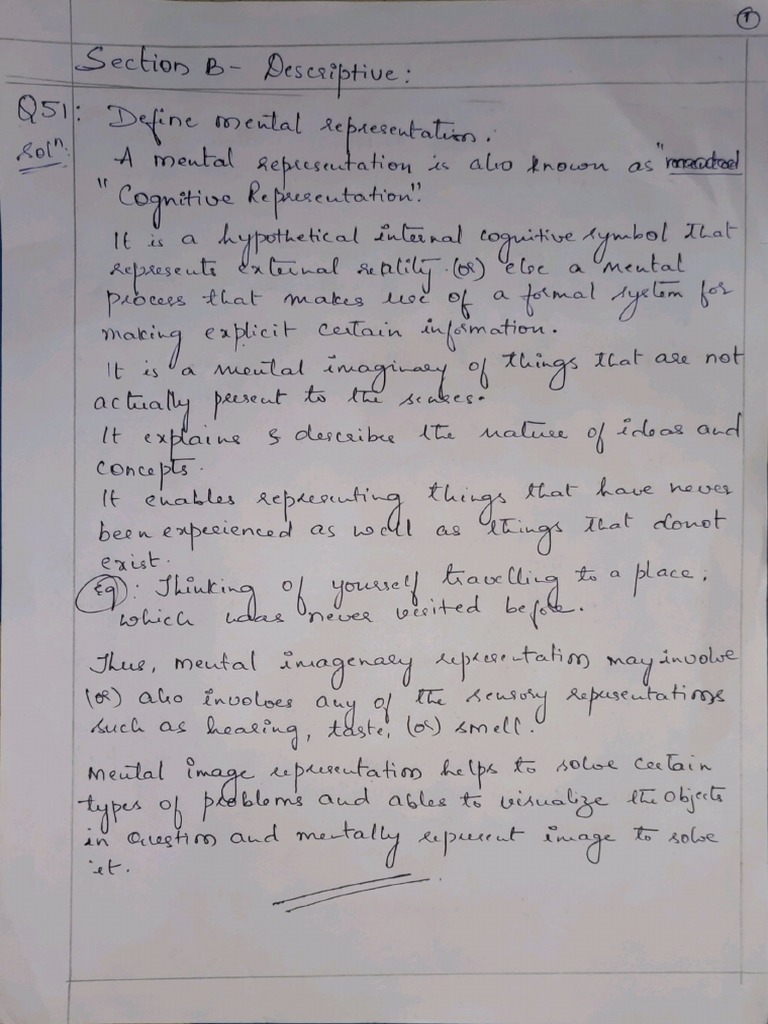 1
Section B - Descriptive:
Q51: Define mental representation.
Solⁿ:
A mental representation is also known as "
"Cognitive Representation".
It is a hypothetical internal cognitive symbol that
represents external reality (or) else a mental
process that makes use of a formal system for
making explicit certain information.
It is a mental imaginary of things that are not
actually present to the senses.
It explains & describes the nature of ideas and
concepts.
It enables representing things that have never
been experienced as well as things that donot
exist.
Eg: Thinking of yourself travelling to a place,
which was never visited before.
Thus, mental imagenary representation may involve
(or) also involves any of the sensory representations
such as hearing, taste, (or) smell.
Mental image representation helps to solve certain
types of problems and ables to visualize the objects
in question and mentally represent image to solve
it.